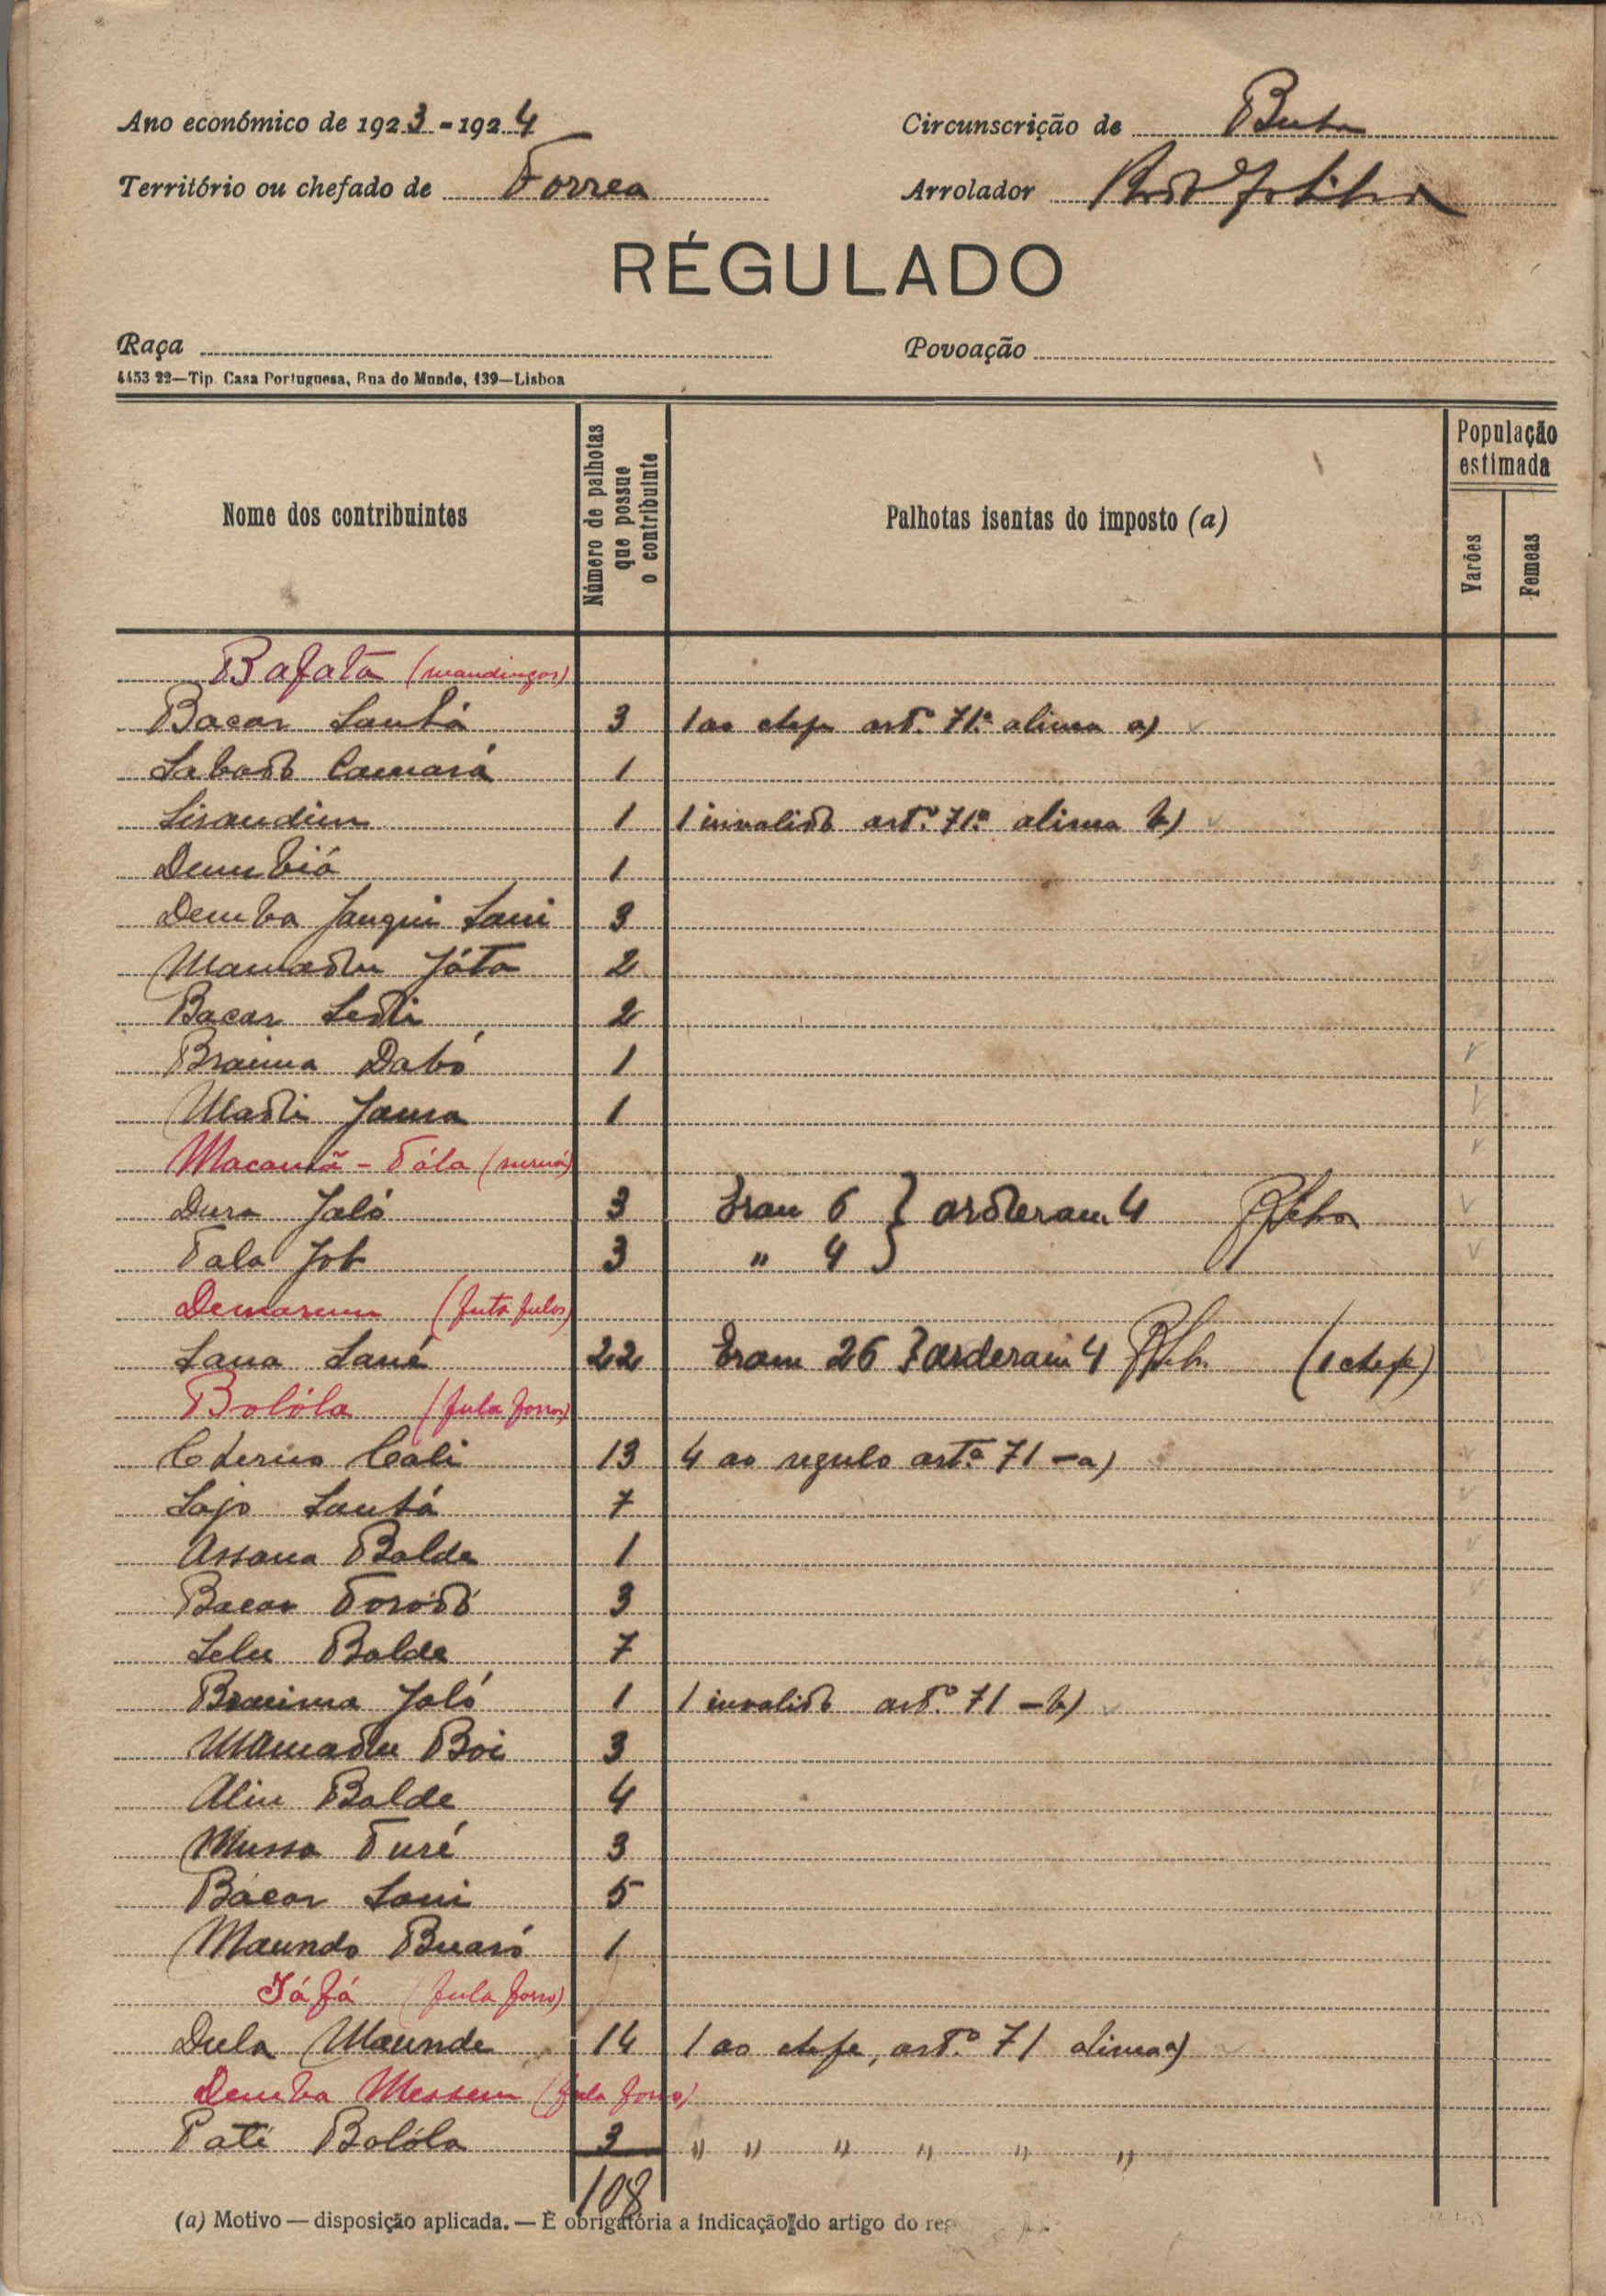 Ano económico de 1923-1924
Circunscrição de Buba
Território ou chefado de Forrea
Arrolador
RÉGULADO
Raça
Povoação
4453 22—Tip. Casa Portuguesa, Rua do Mundo, 139—Lisboa
Nome dos contribuintes
Número de palhotas que possue o contribuinte
Palhotas isentas do imposto (a)
População estimada
Varões
Femeas
Bafata (mandingos)
Bacar Santá 3 1 ao chefe artº 71º alinea a)
Camará 1
1 1 invalido artº 71º alinea b)
Dembió 1
Demba Janqui Sani 3
Mamadu Játa 2
Bacar Sedi 2
Braima Dabó 1
Madi Jama 1
Tála
Dura Jaló 3 Eram 6 } arderam 4
Tala Job 3 " 4
(futa fulos)
Sana Sané 22 Eram 26 } arderam 4 (1 chefe)
Bolóla (fula forros)
Cali 13 4 ao regulo artº 71 - a)
Sajo Santá 7
Assana Balde 1
Bacar Toródó 3
Selu Balde 7
Braima Jaló 1 1 invalido artº 71 - b)
Mamadu Boi 3
Aliu Balde 4
Mussa Turé 3
Bácar Sani 5
Maundo Buaró 1
Jáfá (fula forro)
Dula Maunde 14 1 ao chefe, artº 71 alinea a)
Demba (fula forro)
Paté Bolóla 3 " " " " " "
108
(a) Motivo — disposição aplicada. — É obrigatória a indicação do artigo do